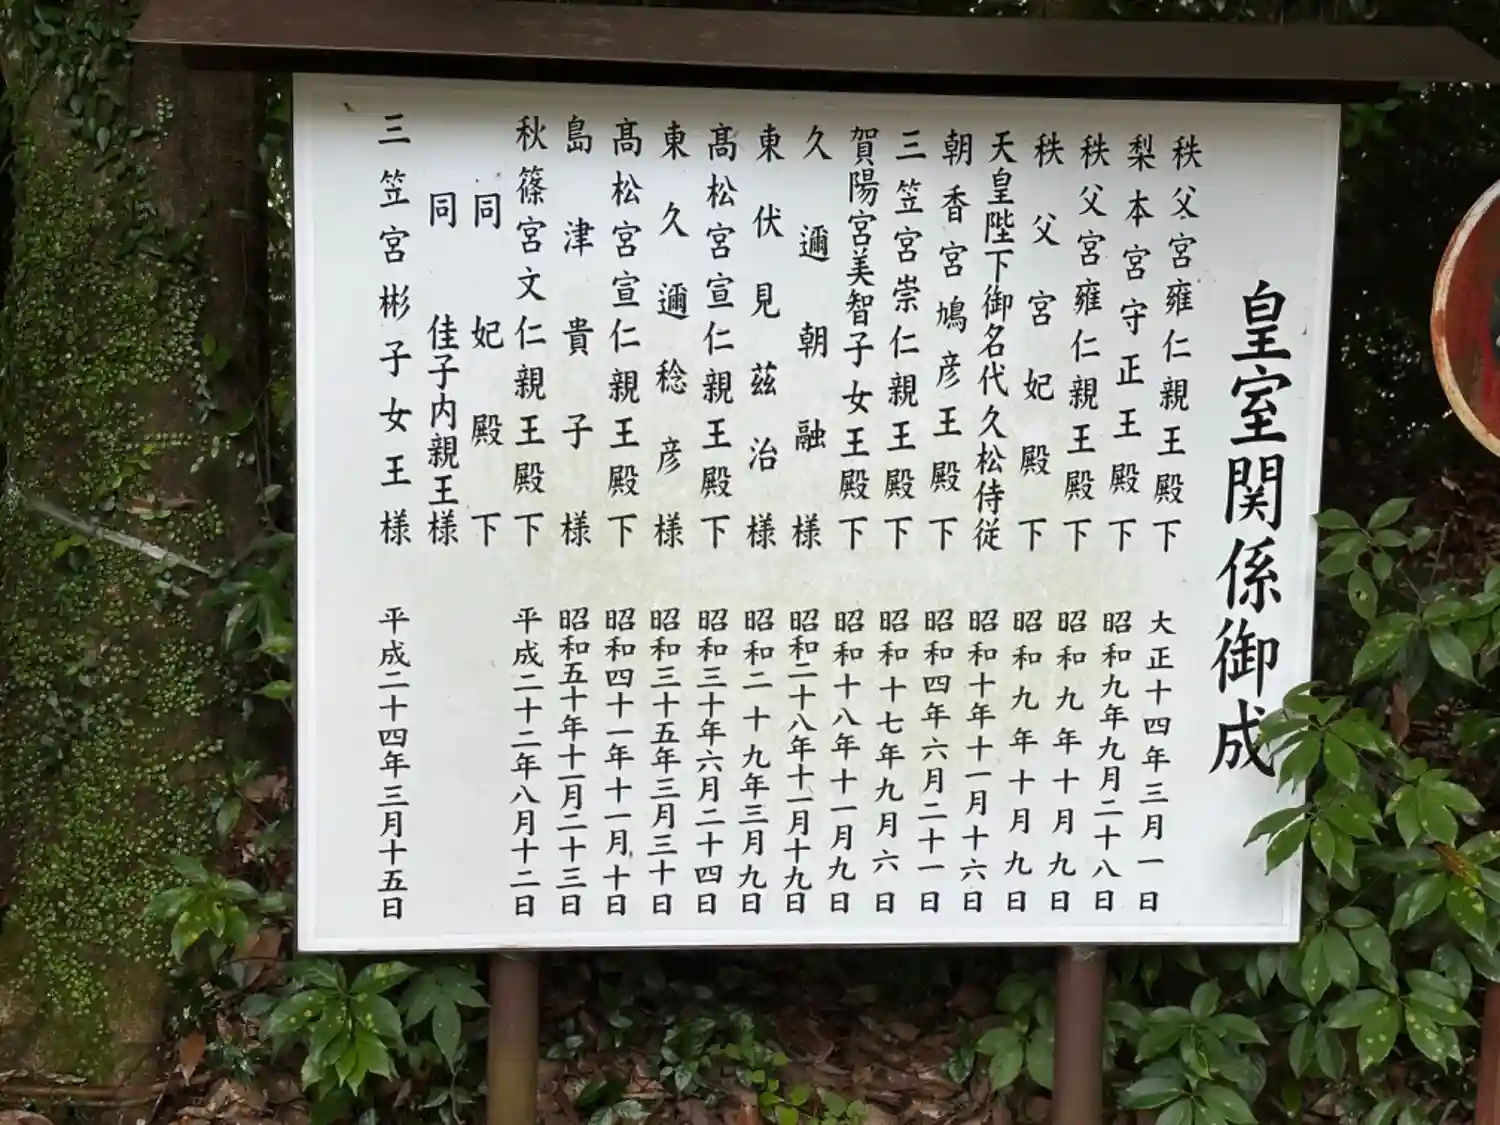 皇室関係御成
秩父宮雍仁親王殿下 大正十四年三月一日
梨本宮守正王殿下 昭和九年九月二十八日
秩父宮雍仁親王殿下 昭和九年十月九日
秩父宮妃殿下 昭和九年十月九日
天皇陛下御名代久松侍従 昭和十年十一月十六日
朝香宮鳩彦王殿下 昭和四年六月二十一日
三笠宮崇仁親王殿下 昭和十七年九月六日
賀陽宮美智子女王殿下 昭和十八年十一月九日
久邇朝融様 昭和二十八年十一月十九日
東伏見茲治様 昭和二十九年三月九日
髙松宮宣仁親王殿下 昭和三十年六月二十四日
東久邇稔彦様 昭和三十五年三月三十日
髙松宮宣仁親王殿下 昭和四十一年十一月十日
島津貴子様 昭和五十年十一月二十三日
秋篠宮文仁親王殿下 平成二十二年八月十二日
同妃殿下
同佳子内親王様
三笠宮彬子女王様 平成二十四年三月十五日